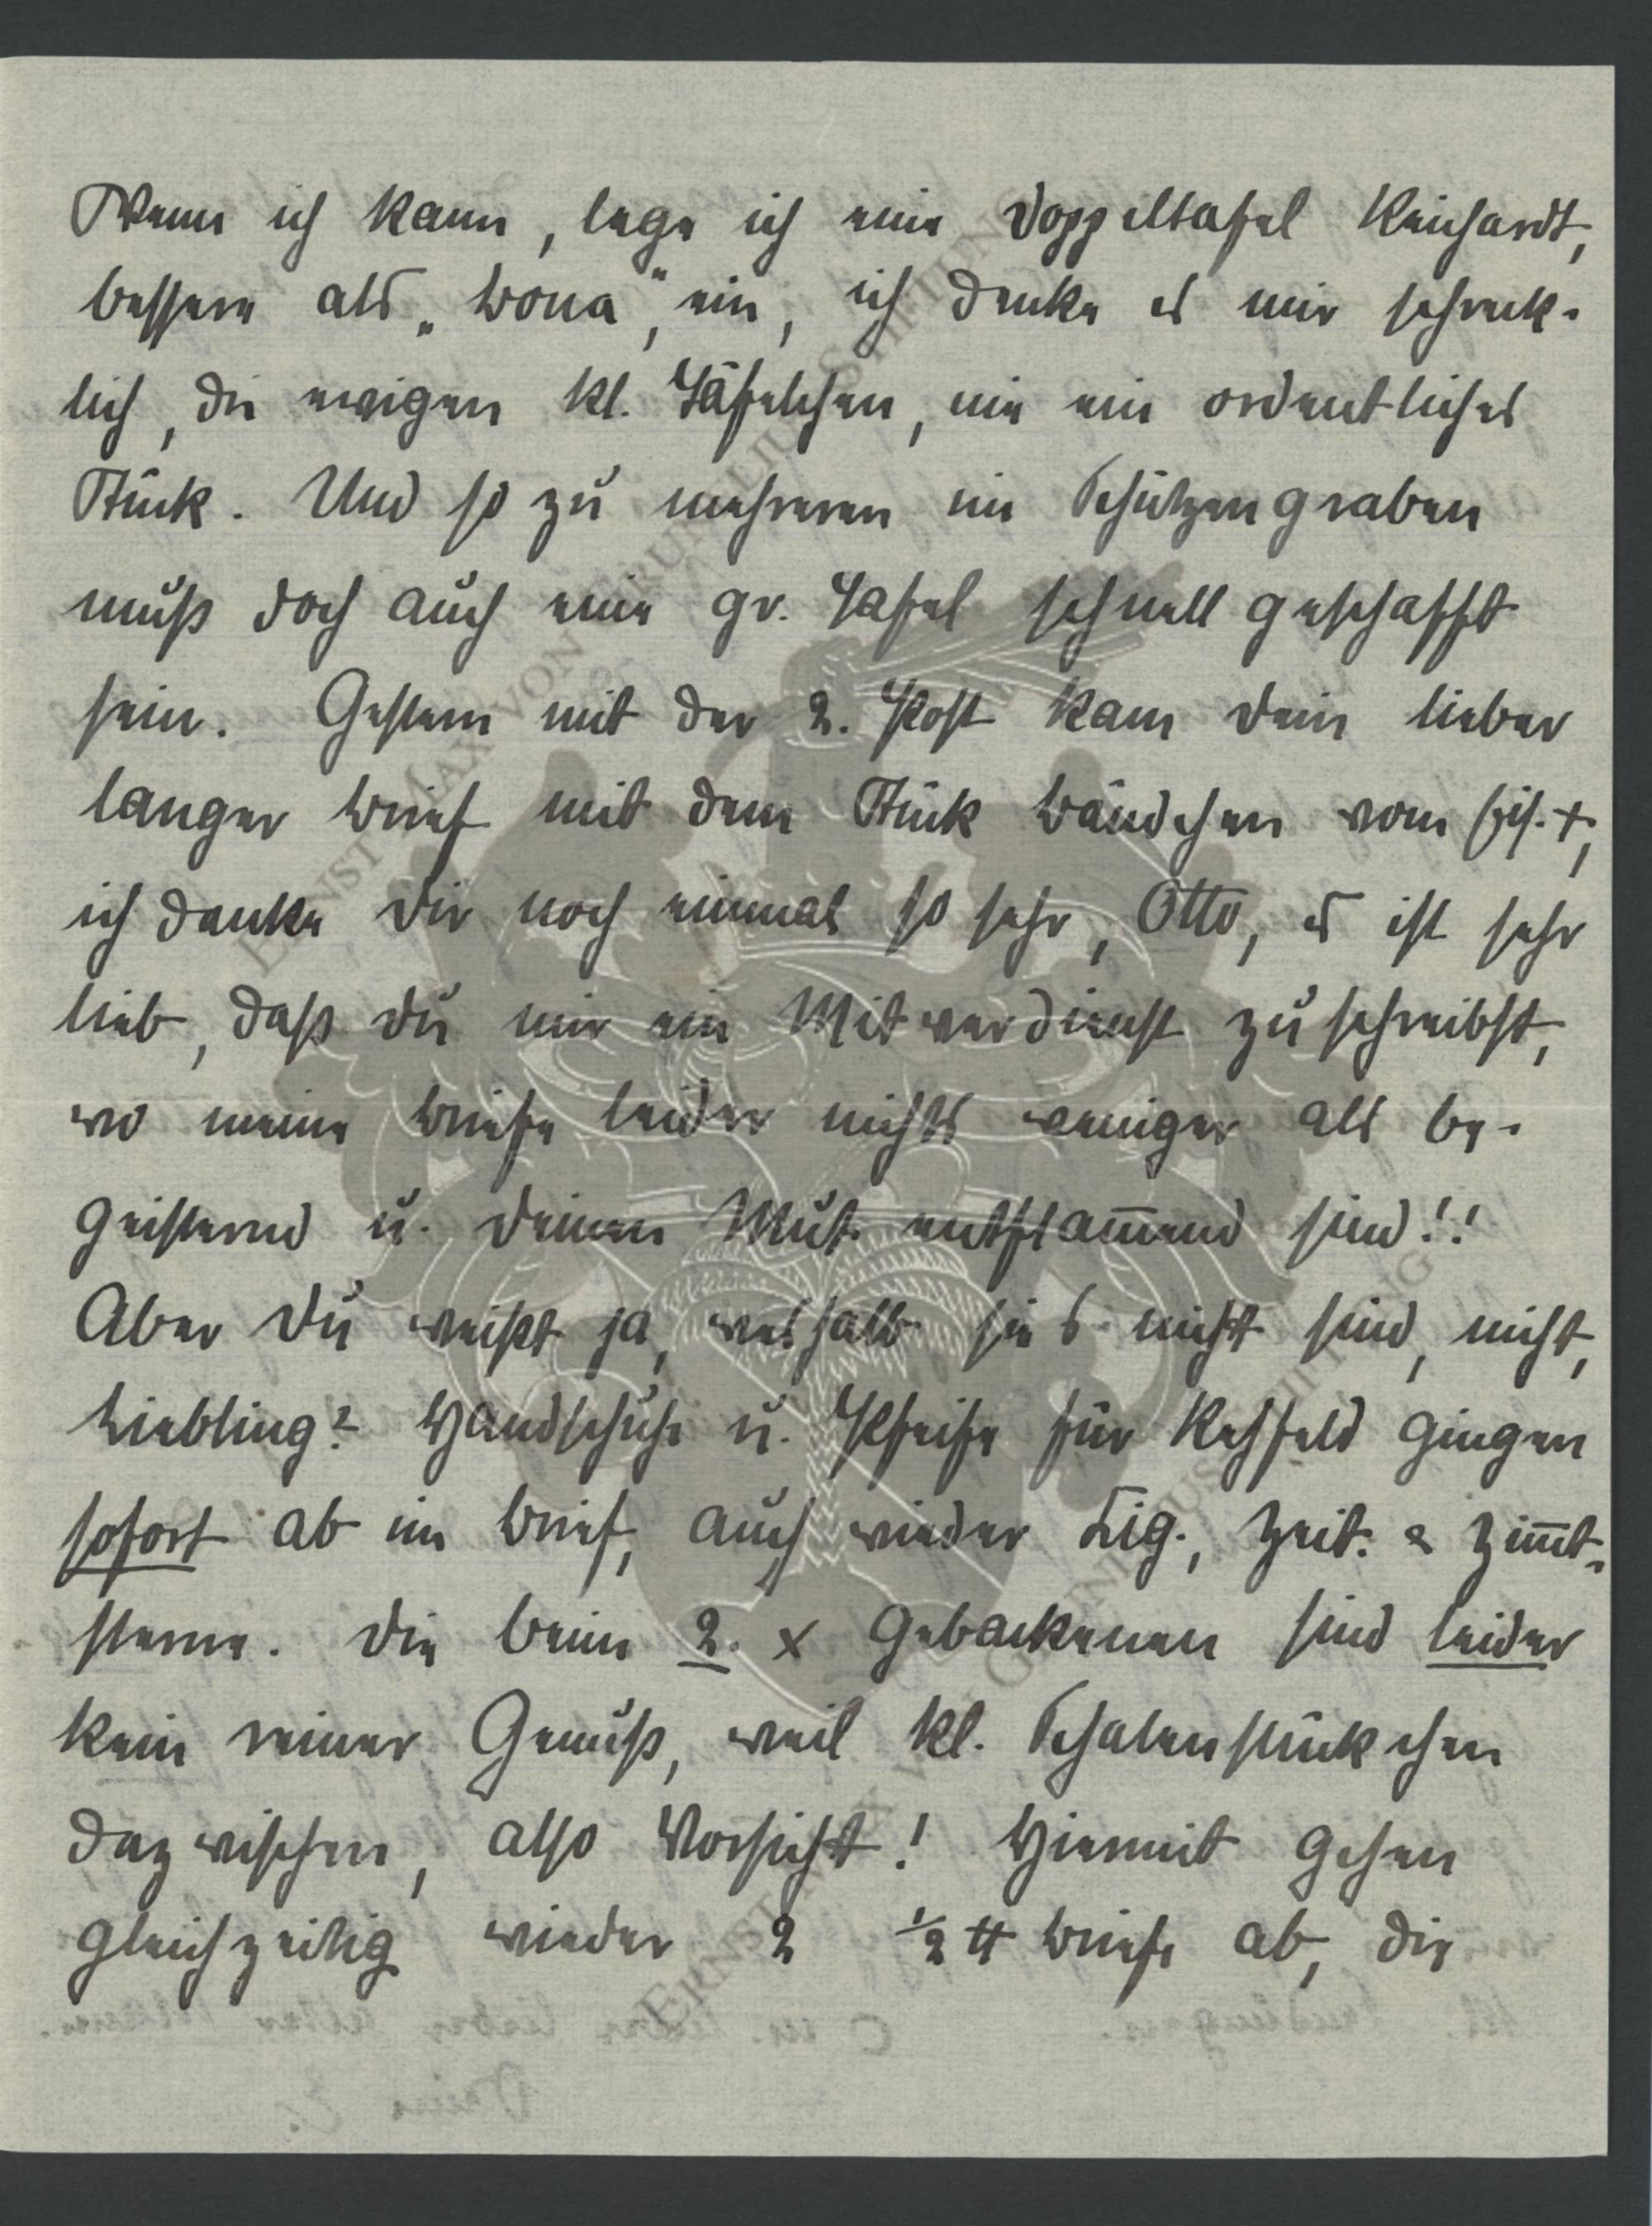 Wenn ich kann, lege ich eine Doppeltafel Reichardt,
bessere als „Bona", ein, ich denke es mir schreck-
lich, die ewigen kl. Täfelchen, nie ein ordentliches
Stück. Und so zu mehreren im Schützengraben
muß doch auch eine gr. Tafel schnell geschafft
sein. Gestern mit der 2. Post kam Dein lieber
langer Brief mit dem Stück Bändchen vom +,
ich danke Dir noch einmal so sehr, Otto, es ist sehr
lieb, daß Du mir ein Mitverdienst zuschreibst,
wo meine Briefe leider nichts weniger als be-
geisternd u. Deinen Mut entflam̅end sind!!
Aber Du weißt ja, weshalb sie's nicht sind, nicht,
Liebling? Handschuhe u. Pfeife für Rehfeld gingen
sofort ab im Brief, auch wieder Zig., Zeit. & Zim̅t-
sterne. Die beim 2. x Gebackenen sind leider
kein reiner Genuß, weil kl. Schalenstückchen
dazwischen, also Vorsicht! Hiermit gehen
gleichzeitig wieder 2 ½ ℔ Briefe ab, die
ERNST MAX VON GRUNELIUS STIFTUNG
ERNST MAX V. GRUNELIUS STIFTUNG